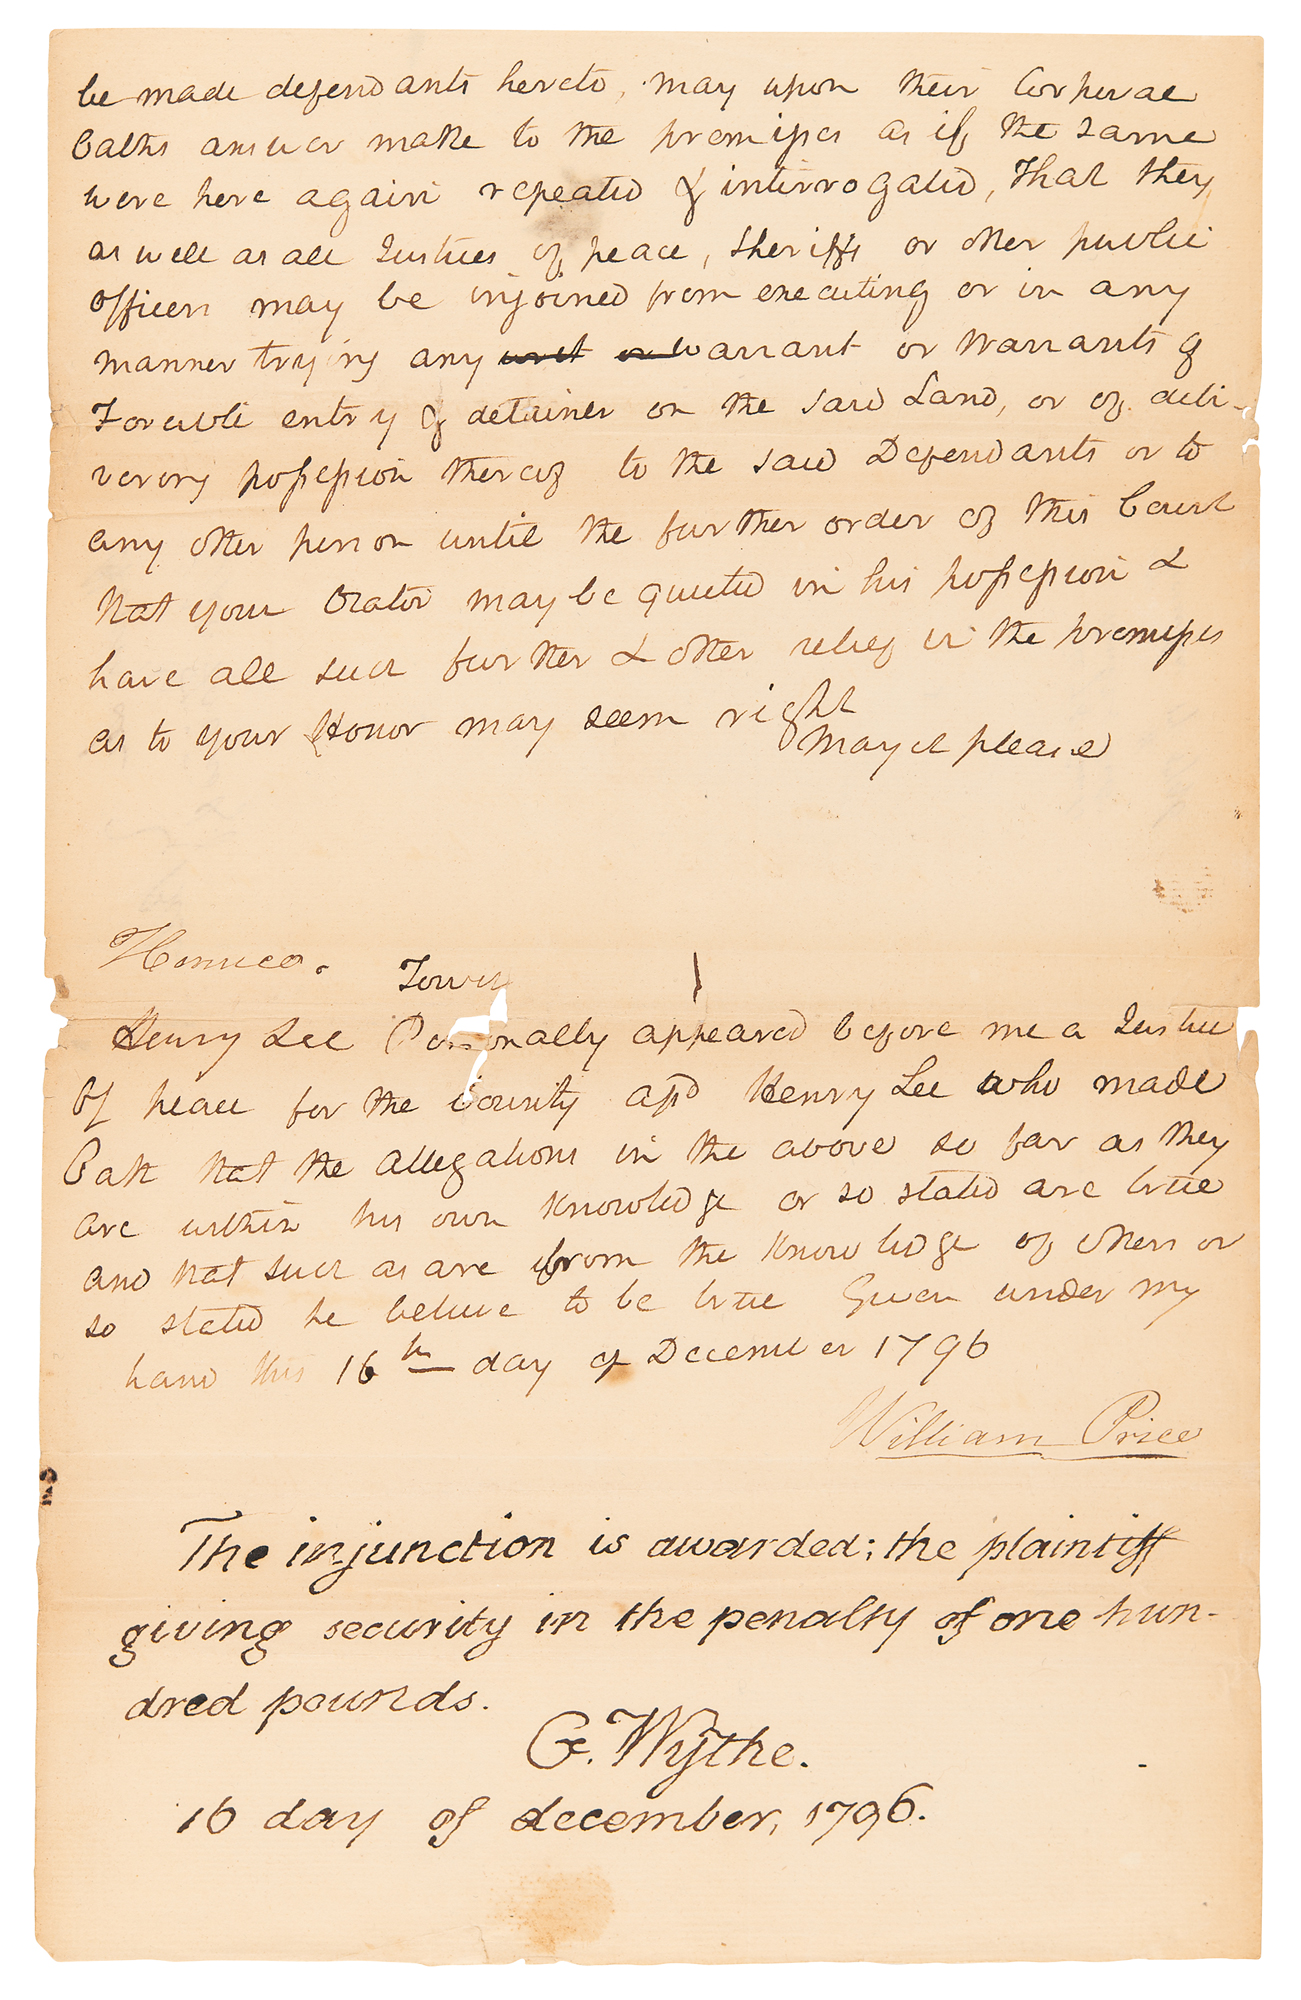 be made defendants hereto, may upon their Corperae
Oaths answer make to the premisses as if the same
were here again repeated & interrogated, That they
as well as all Justices of peace, Sheriffs or other public
officers may be injoined from executing or in any
manner trying any writ or warrant or Warrants of
Forcible entry & detainer on the said Land, or of deli-
vering possession thereof to the said Defendants or to
any other person until the further order of this Court
that your Orator may be quieted in his possession &
have all such further & other relief in the premisses
as to your Honor may seem right
May it please
Henrico.
Towit
Henry Lee Personally appeared before me a Justice
Of peace for the County afd Henry Lee who made
Oath that the allegations in the above so far as they
are within his own knowledge or so stated are true
and that such as are from the knowledge of others or
so stated he believe to be true Given under my
hand this 16th day of December 1796
William Price
The injunction is awarded; the plaintiff
giving security in the penalty of one hun-
dred pounds.
G. Wythe.
16 day of december, 1796.